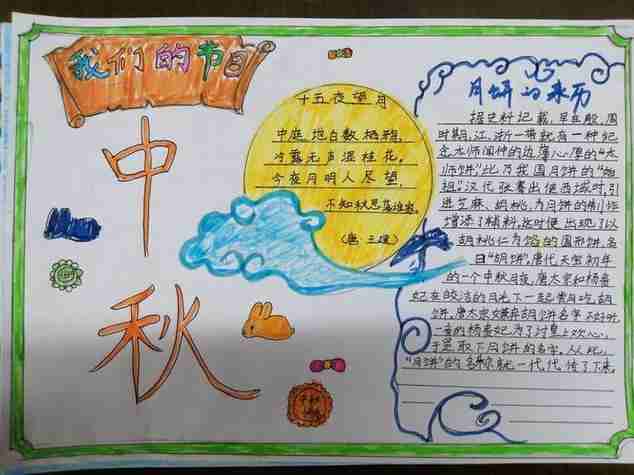 我们的节日
中秋
十五夜望月
中庭地白数栖鸦，
冷露无声湿桂花。
今夜月明人尽望，
不知秋思落谁家。
（唐 王建）
月饼的来历
据史料记载，早在殷、周
时期，江、浙一带就有一种纪
念太师闻仲的边薄心厚的“太
师饼”，此乃我国月饼的“始
祖”。汉代张骞出使西域时，引
进芝麻、胡桃，为月饼的制作
增添了辅料，这时便出现了以
胡桃仁为馅的圆形饼，名
曰“胡饼”。唐代，
的一个中秋月夜，唐太宗和杨贵
妃在皎洁的月光下一起赏月吃胡
饼，唐太宗嫌弃胡饼名字不好听，
一旁的杨贵妃为了讨皇上欢心，
取下月饼的名字。从此，
“月饼”的名称就一代代传了下来。